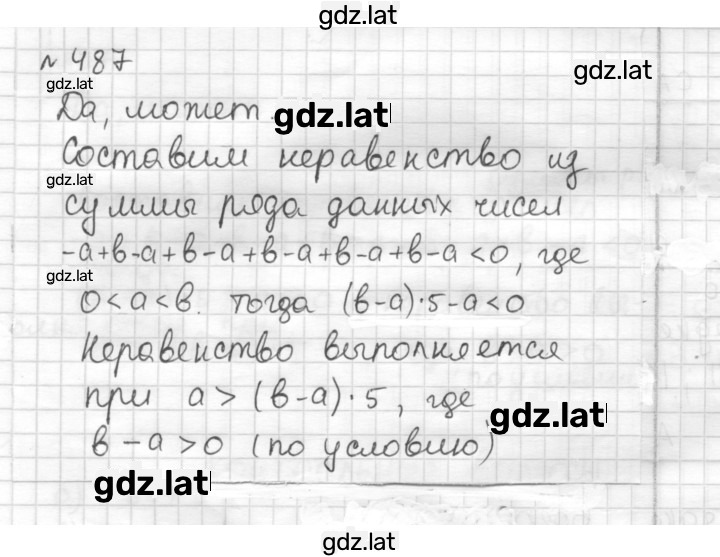 gdz.lat
№ 487
gdz.lat
gdz.lat
Да, может
gdz.lat
Составим неравенство из
gdz.lat
суммы ряда данных чисел
-а+в-а+в-а+в-а+в-а+в-а<0, где
gdz.lat
0<а<в. тогда (в-а)·5-а<0
Неравенство выполняется
при а>(в-а)·5, где
gdz.lat
в-а>0 (по условию)
gdz.lat
gdz.lat